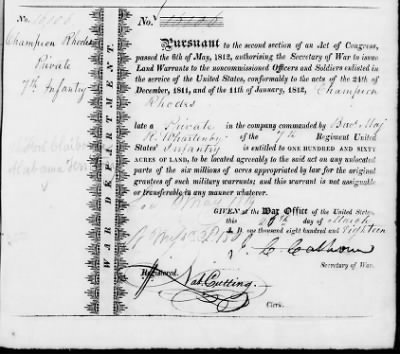 No. 10106
Champion Rhodes
Private
7th Infantry
WAR DEPARTMENT.
No.
Pursuant to the second section of an Act of Congress,
passed the 6th of May, 1812, authorising the Secretary of War to issue
Land Warrants to the noncommissioned Officers and Soldiers enlisted in
the service of the United States, conformably to the acts of the 24th of
December, 1811, and the 11th of January, 1812, Champion
Rhodes
late a Private in the company commanded by Brvt Maj
Whartenby of the 7th Regiment United
States' Infantry is entitled to ONE HUNDRED AND SIXTY
ACRES OF LAND, to be located agreeably to the said act on any unlocated
parts of the six millions of acres appropriated by law for the original
grantees of such military warrants; and this warrant is not assignable
or transferable in any manner whatever.
GIVEN at the War Office of the United States
this day of March
A. D. one thousand eight hundred and Eighteen
J. C. Calhoun
Secretary of War.
Registered.
Nat. Cutting.
Clerk.